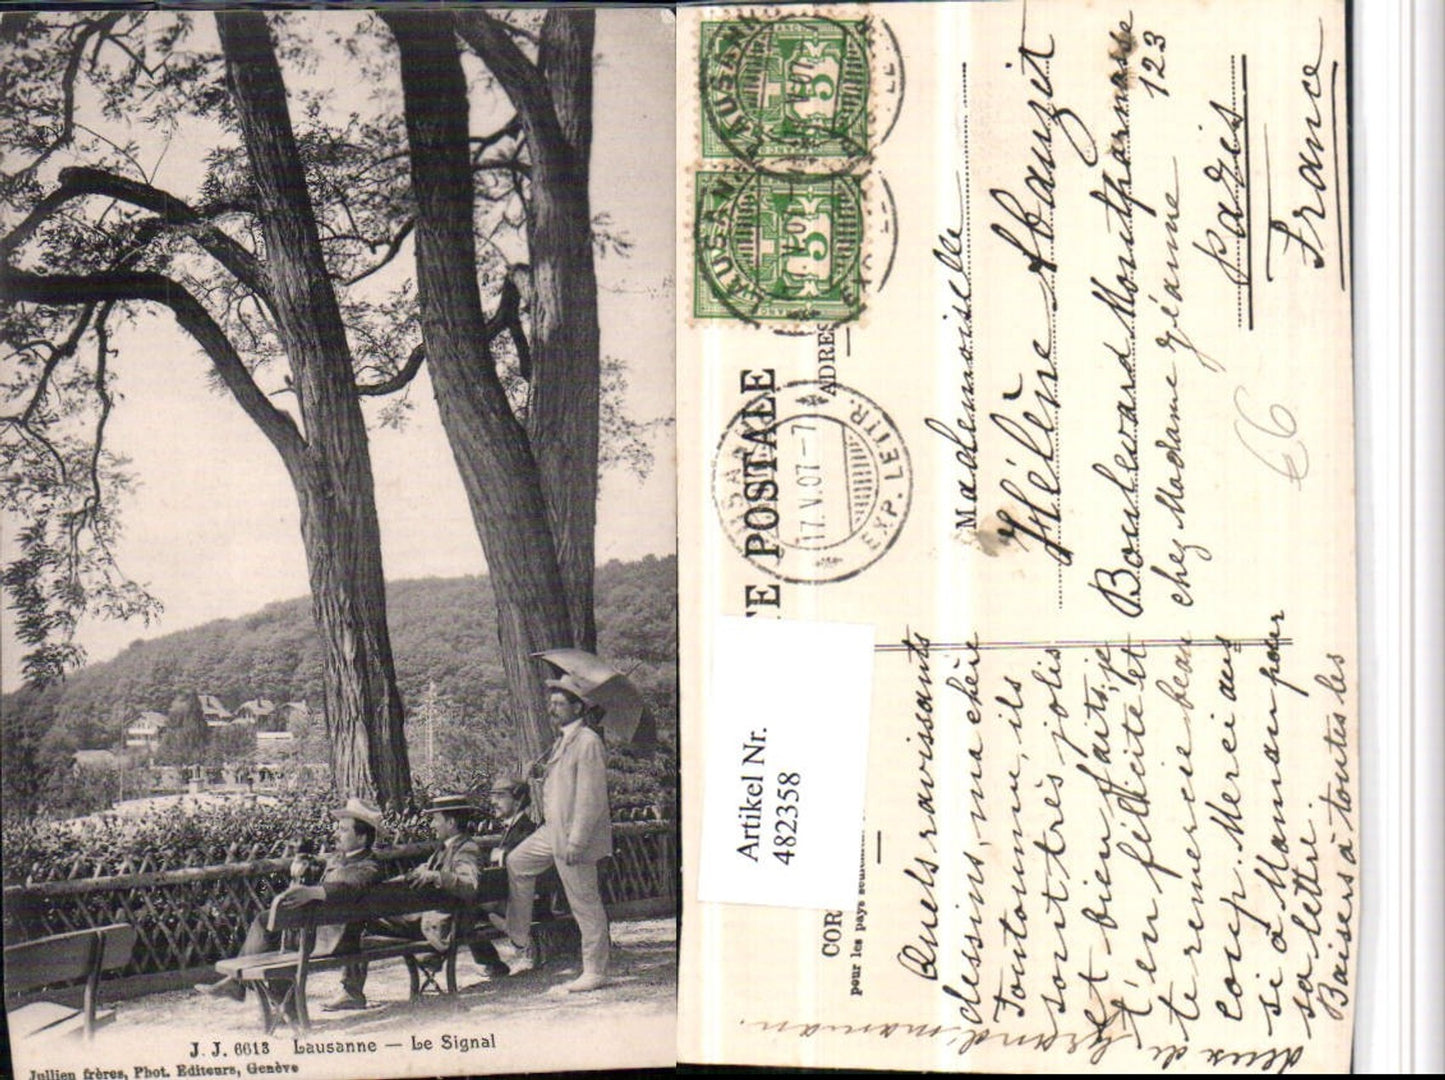 J. J. 6613 Lausanne — Le Signal
Jullien frères, Phot. Editeurs, Genève
TE POSTALE
ADRES
LAUSANNE
EXP. LETTR.
17.V.07-7
5
5
Mademoiselle
Hélène Abauzit
Boulevard Montparnasse
123
chez Madame Jéanne
Paris
France
66
Artikel Nr.
482358
COR
pour les pays
Quels ravissants
dessins, ma chère
Tontonne, ils
sont très jolis
et bien faits, je
t'en félicite et
te remercie beau
coup. Merci aus
si à Maman pour
sa lettre.
Baisers à toutes les
deux de Grand'maman.